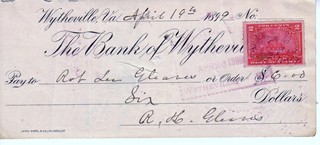 Wytheville, Va. April 19th 1899 No.
The Bank of Wytheville
Pay to Rob Lee Gleaves or Order $6.00
Six Dollars
R. H. Gleaves